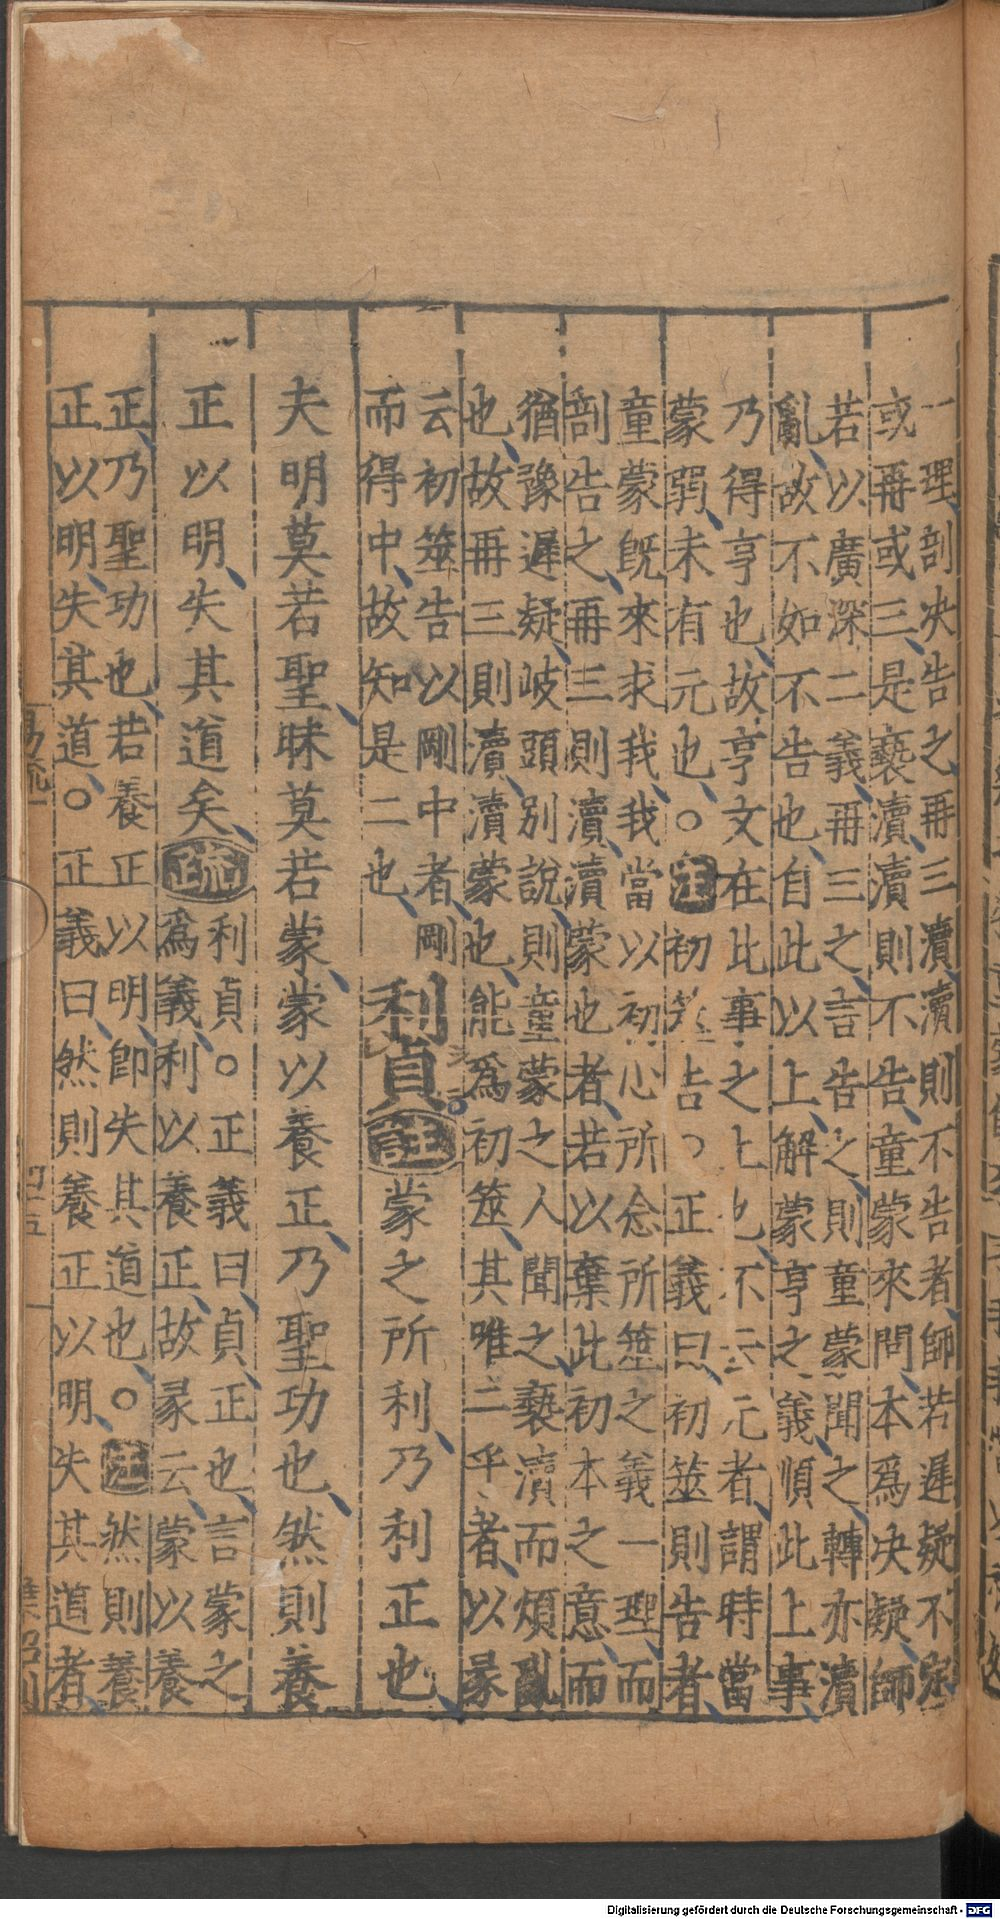 一理剖决告之再三瀆瀆則不告者師若遲疑不定
或再或三是褻瀆瀆則不告童蒙來問本爲决疑師
若以廣深二義再三之言告之則童蒙聞之轉亦瀆
亂故不如不告也自此以上解蒙亨之義順此上事
乃得亨也故亨文在此事之上也不云元者謂時當
蒙弱未有元也○注初筮告○正義曰初筮則告者
童蒙旣來求我我當以初心所念所筮之義一理而
剖告之再三則瀆瀆蒙也者若以棄此初本之意而
猶豫遲疑岐頭別說則童蒙之人聞之褻瀆而煩亂
也故再三則瀆瀆蒙也能爲初筮其唯二乎者以彖
云初筮告以剛中者剛
而得中故知是二也
利貞注蒙之所利乃利正也
夫明莫若聖昧莫若蒙蒙以養正乃聖功也然則養
正以明失其道矣疏正
利貞○正義曰貞正也言蒙之
爲義利以養正故彖云蒙以養
正乃聖功也若養正以明卽失其道也○注然則養
正以明失其道○正義曰然則養正以明失其道者
易疏一
四五
Digitalisierung gefördert durch die Deutsche Forschungsgemeinschaft - DFG